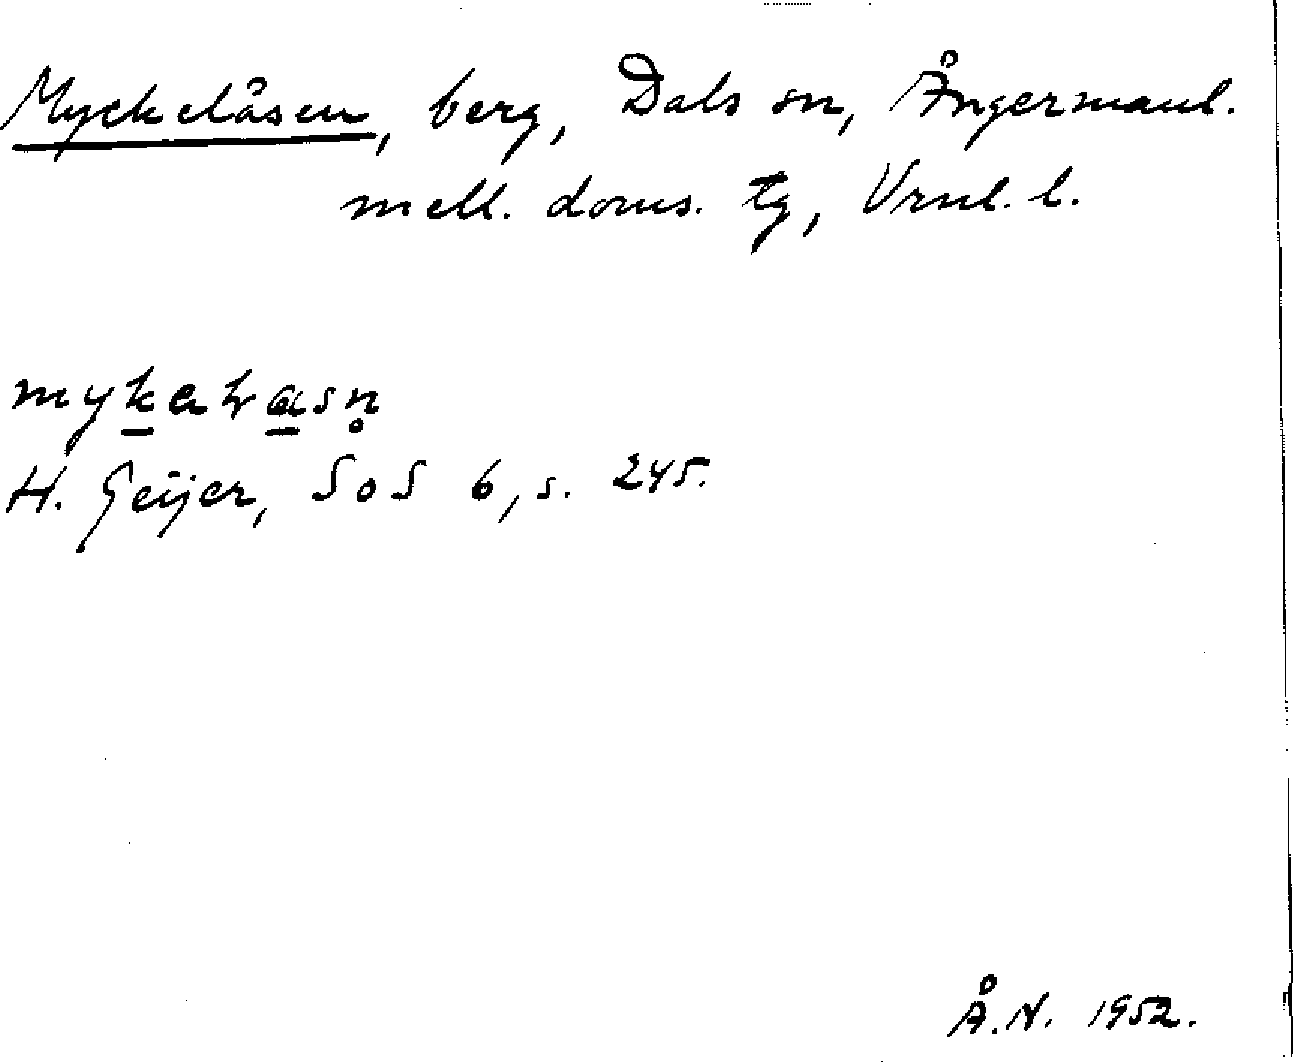 Myckelåsen, berg, Dals sn, Ångermanl.
mell. doms. tg, Vrnl. l.
H. Geijer, SoS 6, s. 245.
Å.N. 1952.